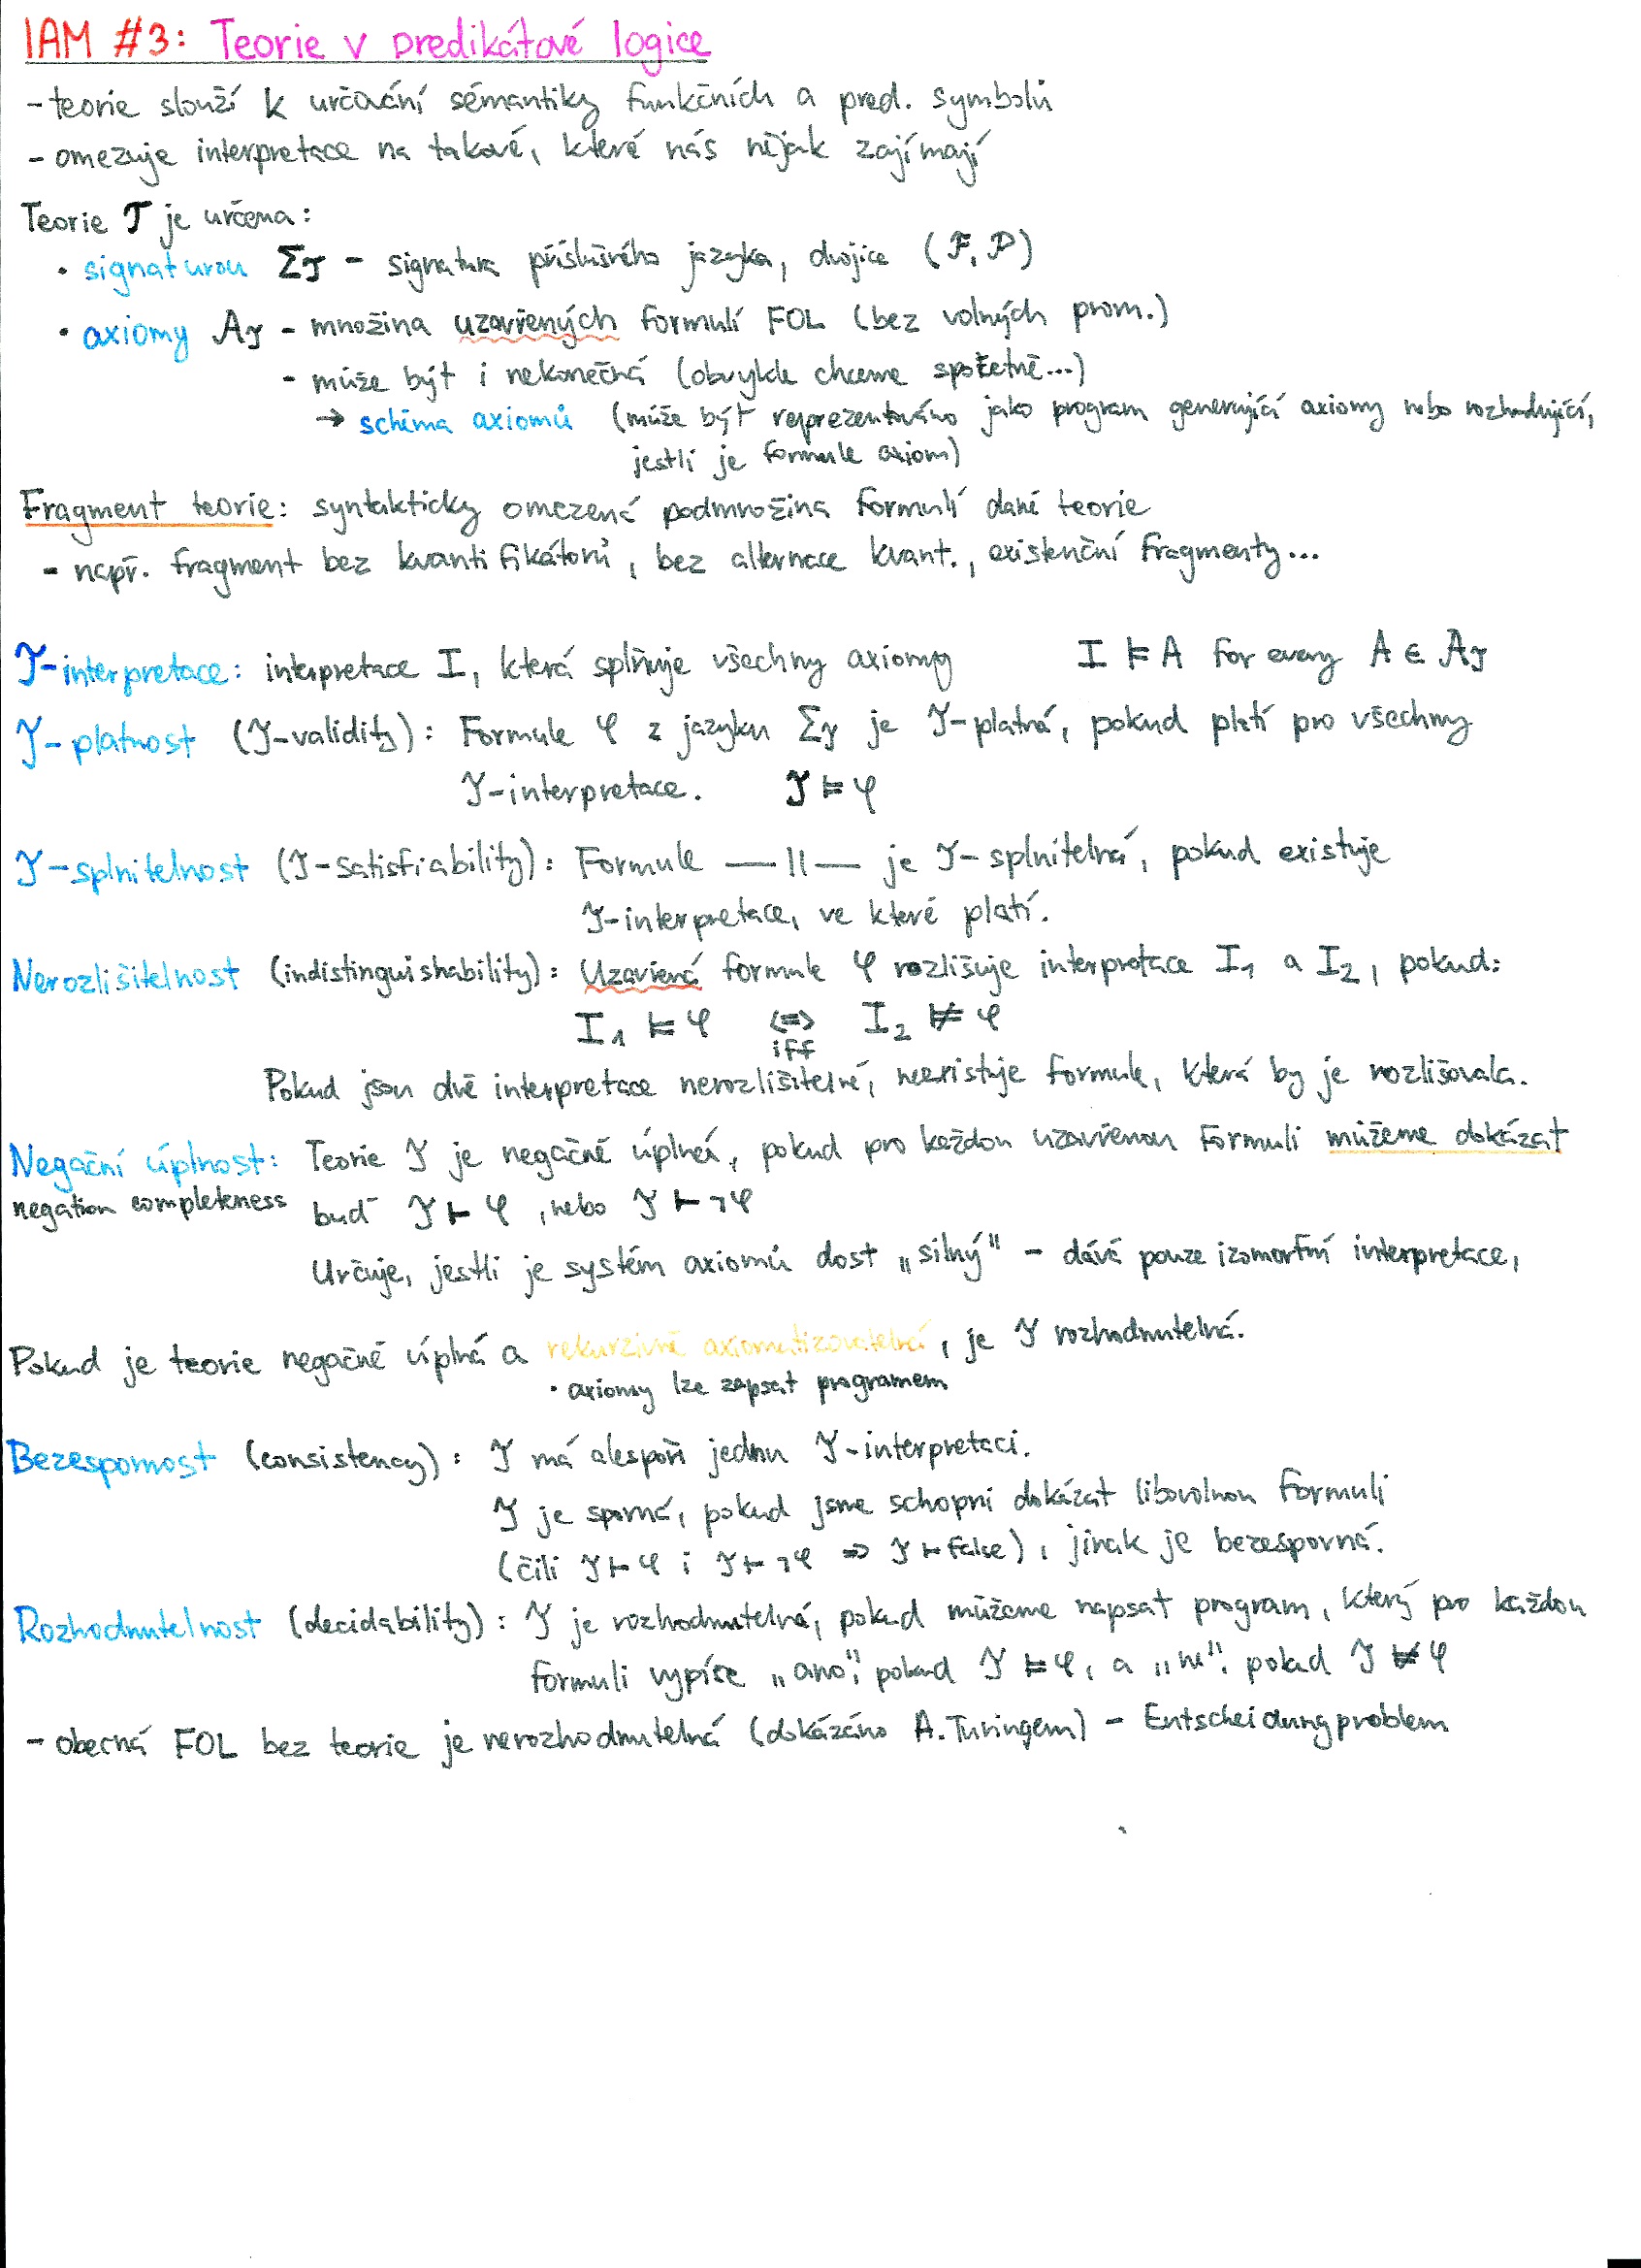 IAM #3: Teorie v predikátové logice
- teorie slouží k určování sémantiky funkčních a pred. symbolů
- omezuje interpretace na takové, které nás nějak zajímají
Teorie 𝒯 je určena:
• signaturou Σ𝒯 - signatura příslušného jazyka, dvojice (ℱ, 𝒫)
• axiomy A𝒯 - množina uzavřených formulí FOL (bez volných prom.)
- může být i nekonečná (obvykle chceme spočetně...)
→ schéma axiomů (může být reprezentováno jako program generující axiomy nebo rozhodující,
jestli je formule axiom)
Fragment teorie: syntakticky omezená podmnožina formulí dané teorie
- např. fragment bez kvantifikátorů, bez alternace kvant., existenční fragmenty...
𝒯-interpretace: interpretace I, která splňuje všechny axiomy I ⊨ A for every A ∈ A𝒯
𝒯-platnost (𝒯-validity): Formule φ z jazyku Σ𝒯 je 𝒯-platná, pokud platí pro všechny
𝒯-interpretace. 𝒯 ⊨ φ
𝒯-splnitelnost (𝒯-satisfiability): Formule —||— je 𝒯-splnitelná, pokud existuje
𝒯-interpretace, ve které platí.
Nerozlišitelnost (indistinguishability): Uzavřená formule φ rozlišuje interpretace I₁ a I₂, pokud:
I₁ ⊨ φ ⇔ I₂ ⊭ φ
iff
Pokud jsou dvě interpretace nerozlišitelné, neexistuje formule, která by je rozlišovala.
Negační úplnost: Teorie 𝒯 je negačně úplná, pokud pro každou uzavřenou formuli můžeme dokázat
negation completeness buď 𝒯 ⊢ φ, nebo 𝒯 ⊢ ¬φ
Určuje, jestli je systém axiomů dost „silný" - dává pouze izomorfní interpretace,
Pokud je teorie negačně úplná a rekurzivně axiomatizovatelná, je 𝒯 rozhodnutelná.
• axiomy lze zapsat programem
Bezespornost (consistency): 𝒯 má alespoň jednu 𝒯-interpretaci.
𝒯 je sporná, pokud jsme schopni dokázat libovolnou formuli
(čili 𝒯 ⊢ φ i 𝒯 ⊢ ¬φ ⇒ 𝒯 ⊢ false), jinak je bezesporná.
Rozhodnutelnost (decidability): 𝒯 je rozhodnutelná, pokud můžeme napsat program, který pro každou
formuli vypíše „ano", pokud 𝒯 ⊨ φ, a „ne", pokud 𝒯 ⊭ φ
- obecná FOL bez teorie je nerozhodnutelná (dokázáno A. Turingem) - Entscheidungproblem